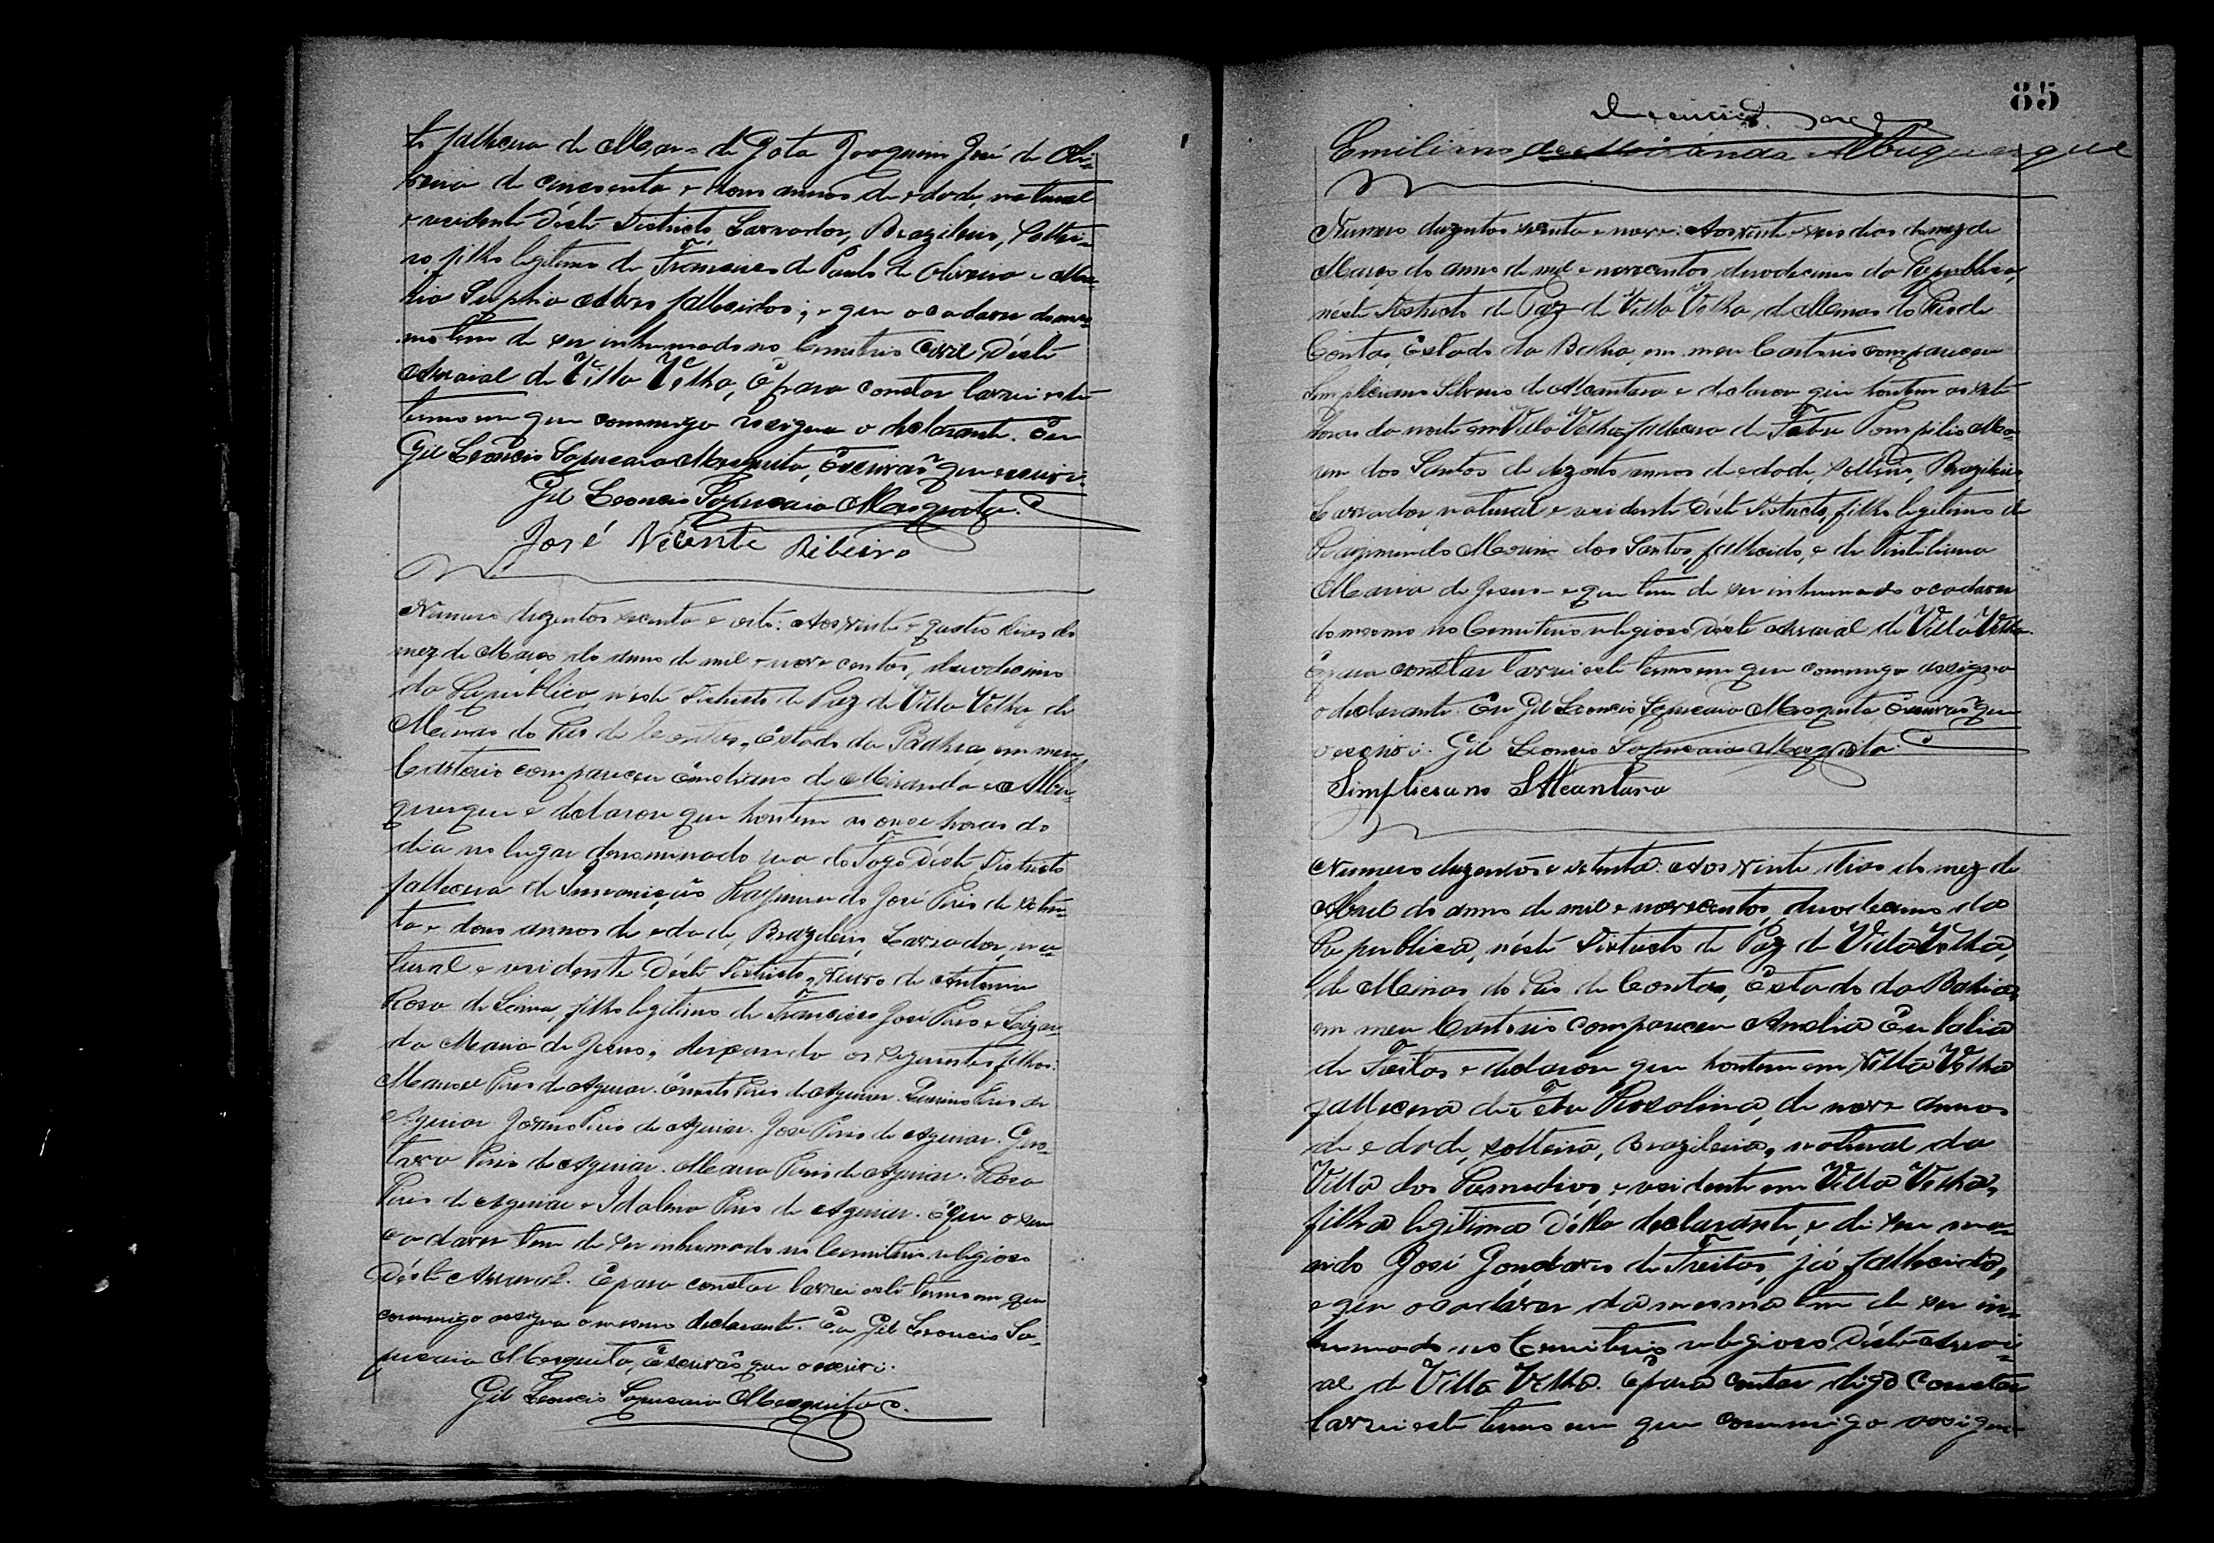 to fallecera de Mar de Gota Joaquim José de Oli-
veira de cincoenta e dous annos de edade, natural
e residente déste Districto, Lavrador, Brazileiro, Soltei-
ro, filho legitimo de Francisco de Paula de Oliveira e Ma-
ria Alves fallecidos; e que o cadaver do mes-
mo tem de ser inhumado no Cemiterio Civil déste
Arraial de Villa Velha, E para constar lavrei este
termo em que commigo assigna o declarante. Eu
Gil Leoncio Sapucaia Mesquita, Escrivão que escrevi.
Gil Leoncio Sapucaia Mesquita.
José Vicente Ribeiro
Numero duzentos secenta e oito: Aos vinte e quatro dias do
mez de Março do anno de mil e nove centos, duodecimo
da Republica néste Districto de Paz de Villa Velha de
Minas do Rio de Contas, Estado da Bahia, em meu
Cartorio compareceu Emeliano de Miranda e Albu-
querque e declarou que hontem as onze horas do
dia no lugar denominado déste Districto
falleceu de Raymundo José Pires de seten-
ta e dous annos de edade, Brazileiro, Lavrador, na-
tural e residente déste Districto, viuvo de Antonia
Rosa de filho legitimo de Francisco José Pires e
da Maria de Jesus, deixando os seguintes filhos:
Manoel Pires de Aguiar. Ernesto Pires de Aguiar. Pires de
Aguiar Pires de Aguiar. José Pires de Aguiar. Gus-
tavo Pires de Aguiar. Maria Pires de Aguiar. Rosa
Pires de Aguiar e Idalina Pires de Aguiar. E que o seu
cadaver tem de ser inhumado no Cemiterio religioso
déste Arraial. E para constar lavrei este termo em que
commigo assigna o mesmo declarante. Eu Gil Leoncio Sa-
pucaia Mesquita, Escrivão que o escrevi.
Gil Leoncio Sapucaia Mesquita.
85
Emiliano de Miranda Albuquerque
Numero duzentos secenta e nove: Aos vinte e seis dias do mez de
Março do anno de mil e novecentos, duodecimo da Republica,
néste Districto de Paz de Villa Velha de Minas do Rio de
Contas, Estado da Bahia, em meu Cartorio compareceu
Simpliciano de Alcantara e declarou que hontem as sete
horas da noite em Villa Velha, fallecera de Febre Pompilio Mo-
rim dos Santos de dezoito annos de edade, Solteiro, Brazileiro
Lavrador, natural e residente déste Districto, filho legitimo de
Raymundo Morim dos Santos, fallecido, e de
Maria de Jesus e que tem de ser inhumado o cadaver
do mesmo no Cemiterio religioso déste Arraial de Villa Velha.
E para constar lavrei este termo em que commigo assigna
o declarante. Eu Gil Leoncio Sapucaia Mesquita Escrivão que
o escrevi. Gil Leoncio Sapucaia Mesquita.
Simpliciano S Alcantara
Numero duzentos e setenta. Aos vinte dias do mez de
Abril do anno de mil e novecentos, duodecimo da
Republica, néste Districto de Paz de Villa Velha,
de Minas do Rio de Contas, Estado da Bahia,
em meu Cartorio compareceu Amelia Eulalia
de Freitas e declarou que hontem em Villa Velha
fallecera de Febre Rosalina, de nove annos
de edade, solteira, Brazileira, natural da
Villa dos Remedios, e residente em Villa Velha,
filha legitima Della declarante, e de seu ma-
rido José de Freitas, já fallecido,
e que o cadaver da mesma tem de ser in-
humado no Cemiterio religioso déste Arrai-
al de Villa Velha. E para contar digo constar
lavrei este termo em que commigo assigna